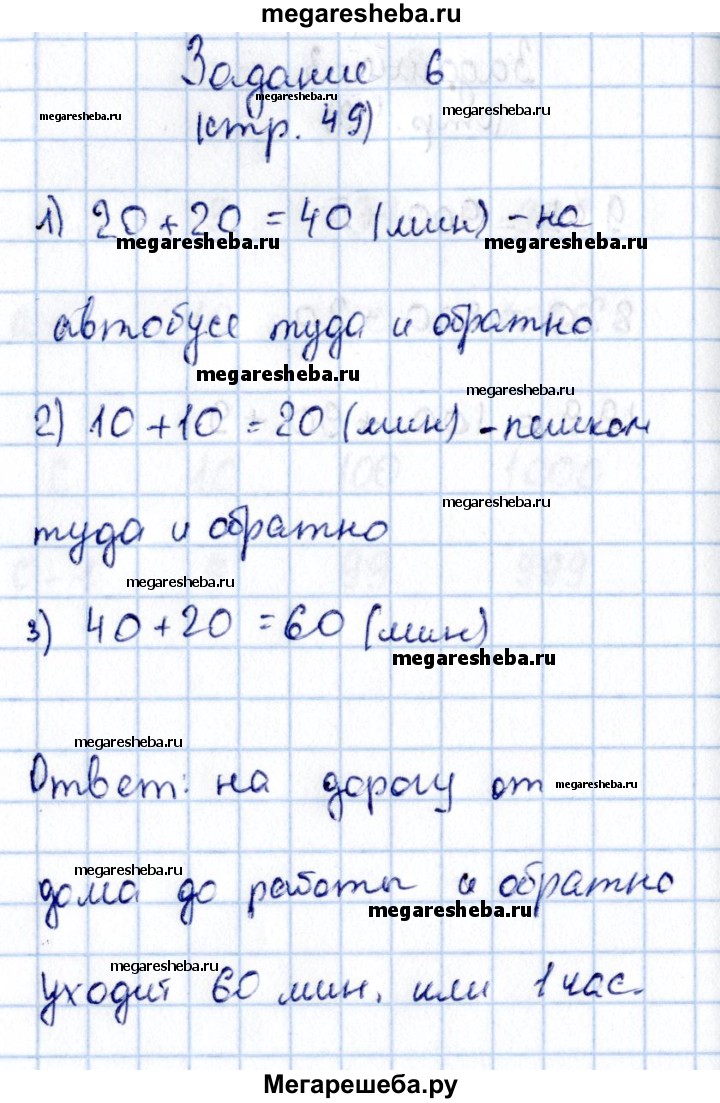 megaresheba.ru
Задание 6
megaresheba.ru
megaresheba.ru
megaresheba.ru
(стр. 49)
1) 20 + 20 = 40 (мин) - на
megaresheba.ru
megaresheba.ru
автобусе туда и обратно
megaresheba.ru
megaresheba.ru
2) 10 + 10 = 20 (мин) - пешком
megaresheba.ru
туда и обратно
megaresheba.ru
3) 40 + 20 = 60 (мин)
megaresheba.ru
megaresheba.ru
Ответ: на дорогу от
megaresheba.ru
megaresheba.ru
дома до работы и обратно
megaresheba.ru
megaresheba.ru
уходит 60 мин. или 1 час.
Мегарешеба.ру